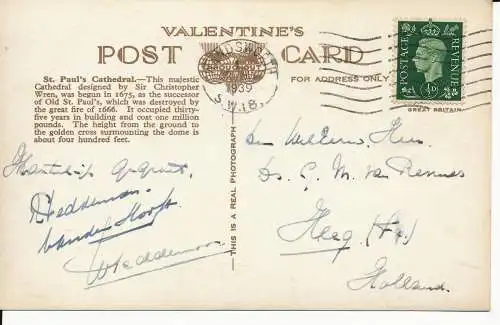 VALENTINE'S
POST CARD
FOR ADDRESS ONLY
St. Paul's Cathedral.—This majestic
Cathedral designed by Sir Christopher
Wren, was begun in 1675, as the successor
of Old St. Paul's, which was destroyed by
the great fire of 1666. It occupied thirty-
five years in building and cost one million
pounds. The height from the ground to
the golden cross surmounting the dome is
about four hundred feet.
1939
S.W.18.
POSTAGE REVENUE
½D
GREAT BRITAIN
THIS IS A REAL PHOTOGRAPH
Hartelijk gegroet
Heddeman
van der Hoofs
Heddeman
Den Weleerw. Heer
Ds. C. M. van Rennes
Heeg (Fr.)
Holland.